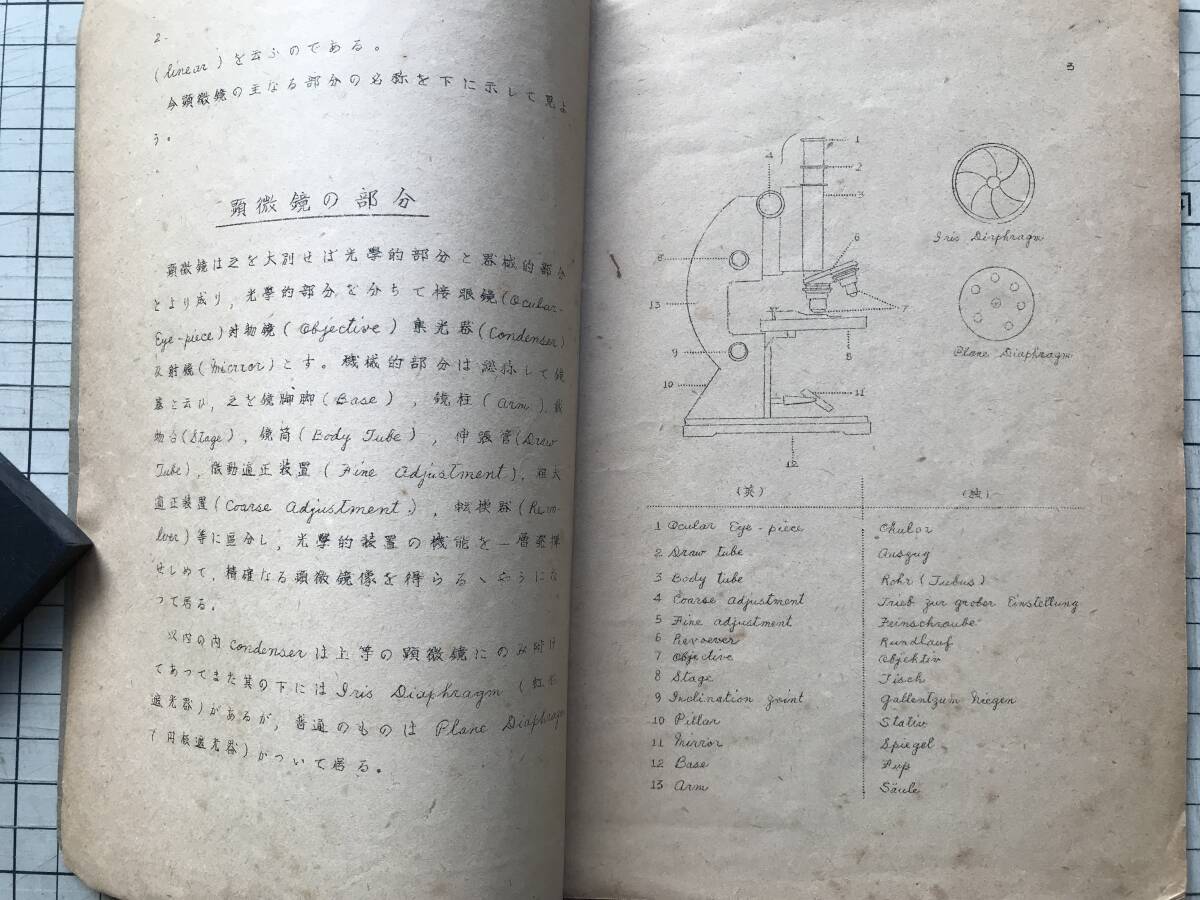 2-
(linear)を云ふのである。
今顕微鏡の主なる部分の名称を下に示して見よ
う。
顕微鏡の部分
顕微鏡は之を大別せば光學的部分と器械的部分
とより成り、光學的部分を分ちて接眼鏡(Ocular-
Eye-piece)対物鏡(Objective)集光器(Condenser)
反射鏡(mirror)とす。機械的部分は総称して鏡
基と云ひ、之を鏡脚(Base)、鏡柱(arm)、載
物台(Stage)、鏡筒(Body Tube)、伸張管(Draw
Tube)、微動適正装置(Fine adjustment)、粗大
適正装置(Coarse adjustment)、転換器(Revo-
lver)等に區分し、光學的装置の機能を一層発揮
せしめて、精確なる顕微鏡像を得らるゝやうにな
つて居る。
以内の内condenserは上等の顕微鏡にのみ附け
てあつてまた其の下にはIris Diaphragm(虹彩
遮光器)があるが、普通のものは Plane Diaphragm
(円板遮光器)がついて居る。
3
1
2
3
4
5
6
7
8
9
10
11
13
10
Iris Diaphragm
Plane Diaphragm
(英) (独)
1 Ocular Eye-piece Okular
2 Draw tube Auszug
3 Body tube Rohr (Tubus)
4 Coarse adjustment Trieb zur grober Einstellung
5 Fine adjustment Feinschraube
6 Revoever Rundlauf
7 Objective Objektiv
8 Stage Tisch
9 Inclination joint Gallentzum Niegen
10 Pillar Stativ
11 Mirror Spiegel
12 Base Fuß
13 Arm Säule